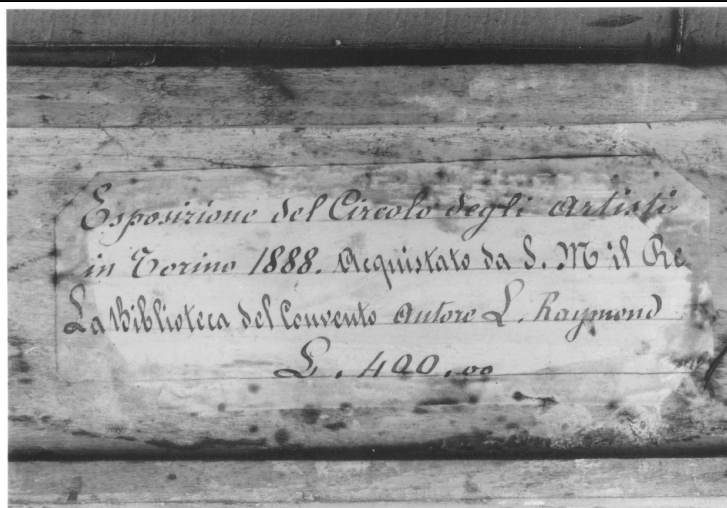 Esposizione del Circolo degli Artisti
in Torino 1888. Acquistato da S. M il Re
La Biblioteca del Convento Autore L. Raymond
L. 400.00